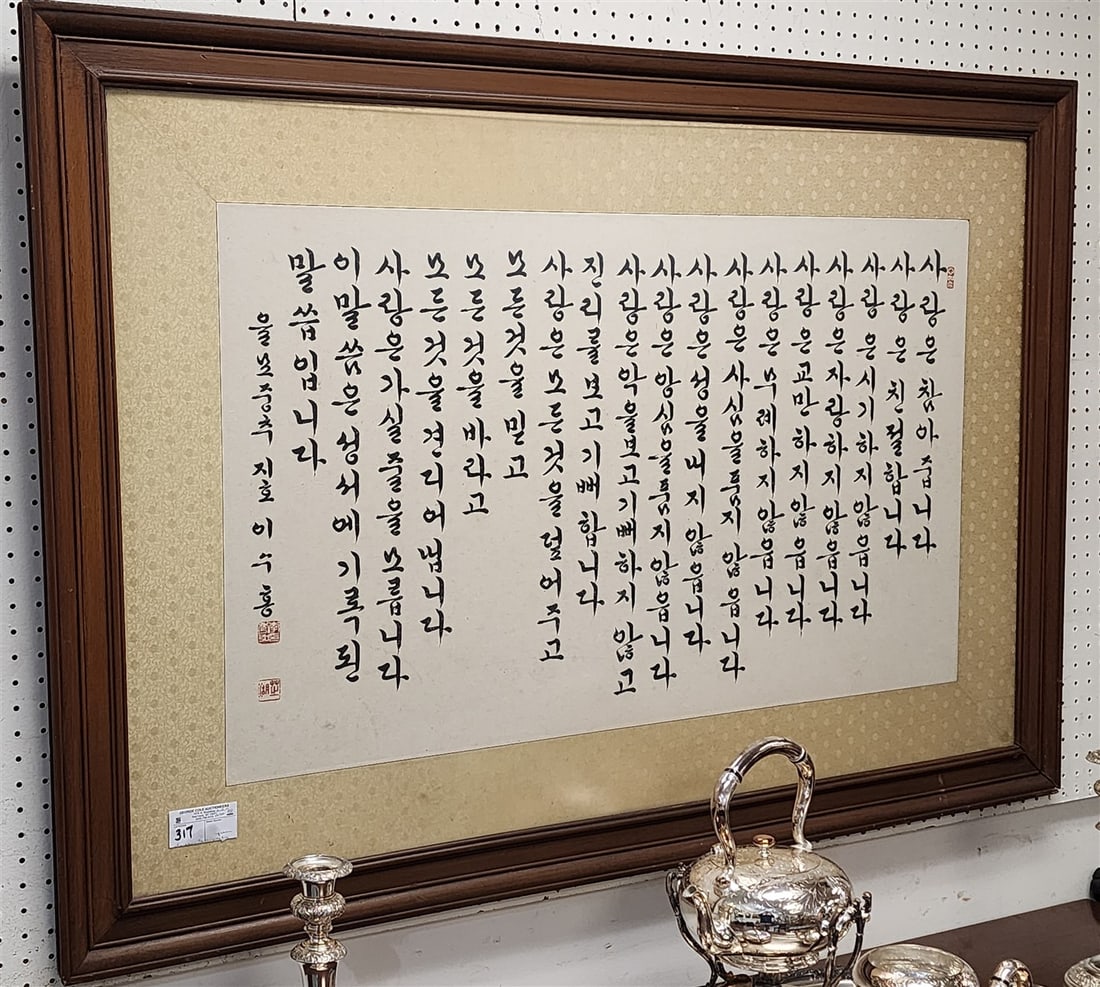 사랑은 참아줍니다
사랑은 친절합니다
사랑은 시기하지않읍니다
사랑은자랑하지않읍니다
사랑은교만하지않읍니다
사랑은무례하지않읍니다
사랑은사심을품지않읍니다
사랑은성을내지않읍니다
사랑은앙심을품지않읍니다
사랑은악을보고기뻐하지않고
진리를보고기뻐합니다
사랑은모든것을덮어주고
모든것을믿고
모든것을바라고
모든것을견디어냅니다
사랑은가실줄을모릅니다
이말씀은성서에기록된
말씀입니다
을묘중추 지호 이수홍
GEORGE COLE AUCTIONEERS
317